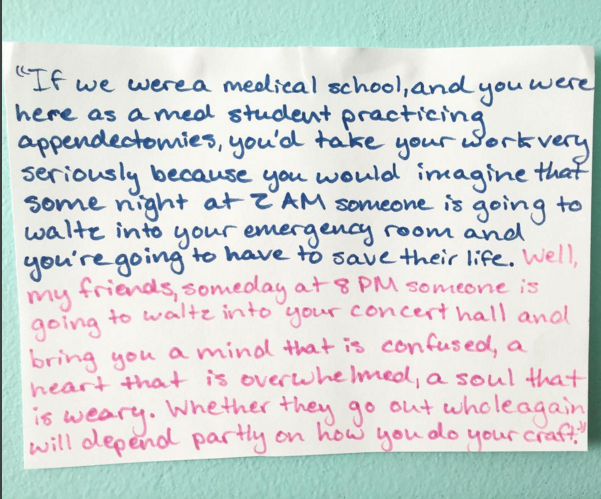 "If we werea medical school, and you were
here as a med student practicing
appendectomies, you'd take your work very
seriously because you would imagine that
some night at 2 AM someone is going to
waltz into your emergency room and
you're going to have to save their life. Well,
my friends, someday at 8 PM someone is
going to waltz into your concert hall and
bring you a mind that is confused, a
heart that is overwhelmed, a soul that
is weary. Whether they go out whole again
will depend partly on how you do your craft."